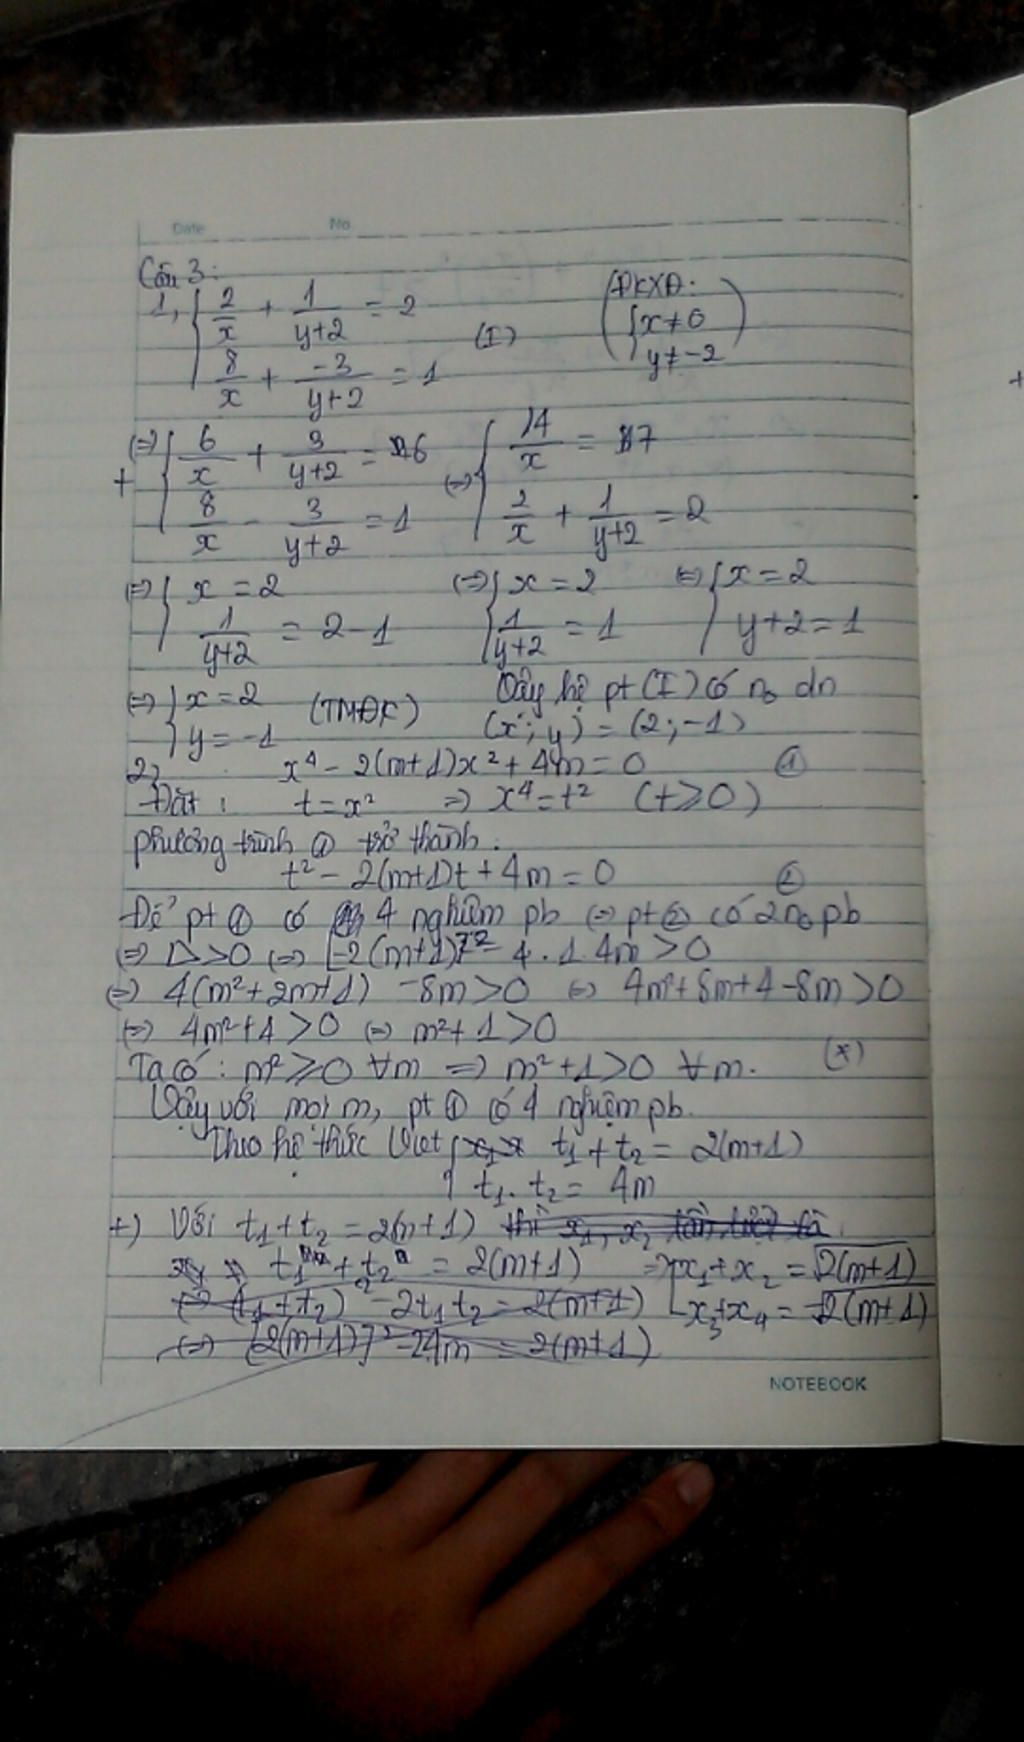 Date No
Câu 3:
1, { 2/x + 1/(y+2) = 2 (I) (ĐKXĐ: { x ≠ 0
8/x + -3/(y+2) = 1 y ≠ -2 )
(=) { 6/x + 3/(y+2) = 6 (=) { 14/x = 7
+ 8/x - 3/(y+2) = 1 2/x + 1/(y+2) = 2
(=) { x = 2 (=) { x = 2 (=) { x = 2
1/(y+2) = 2-1 1/(y+2) = 1 y+2 = 1
(=) { x = 2 (TMĐK) Vậy hệ pt (I) có no dn
y = -1 (x; y) = (2; -1)
2, x⁴ - 2(m+1)x² + 4m = 0 ①
Đặt: t = x² => x⁴ = t² (t ≥ 0)
phương trình ① trở thành:
t² - 2(m+1)t + 4m = 0 ②
Để pt ① có 4 nghiệm pb (=) pt ② có 2 no pb
(=) Δ > 0 (=) [-2(m+1)]² - 4.1.4m > 0
(=) 4(m²+2m+1) - 8m > 0 (=) 4m²+8m+4-8m > 0
(=) 4m²+4 > 0 (=) m²+1 > 0
Ta có: m² ≥ 0 ∀m => m²+1 > 0 ∀m. (*)
Vậy với mọi m, pt ① có 4 nghiệm pb.
Theo hệ thức Viet { t₁ + t₂ = 2(m+1)
t₁.t₂ = 4m
+) Với t₁+t₂ = 2(m+1) thì x₁, x₂ lần lượt là
t₁ + t₂ = 2(m+1) => [ x₁+x₂ = √2(m+1)
(=) (t₁+t₂)² - 2t₁t₂ = 2(m+1) x₃+x₄ = -√2(m+1)
(=) [2(m+1)]² - 2.4m = 2(m+1)
NOTEBOOK
+